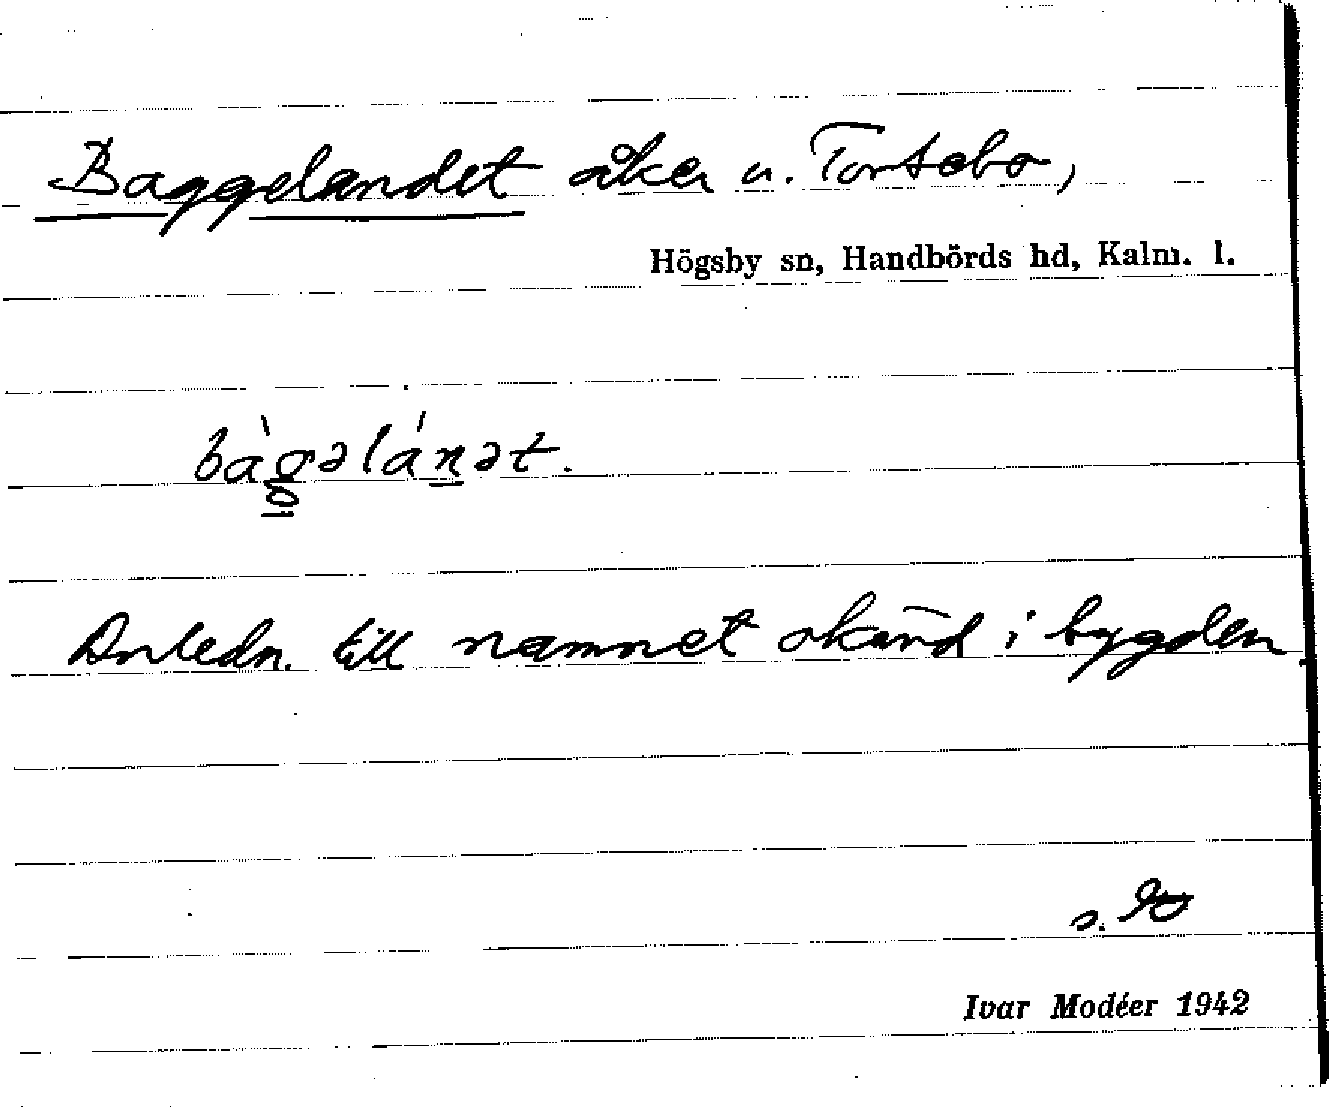 Baggelandet åker u. Tortebo,
Högsby sn, Handbörds hd, Kalm. l.
bàg̲əlán̲ət.
Anledn. till namnet okänd i bygden
s.
Ivar Modéer 1942